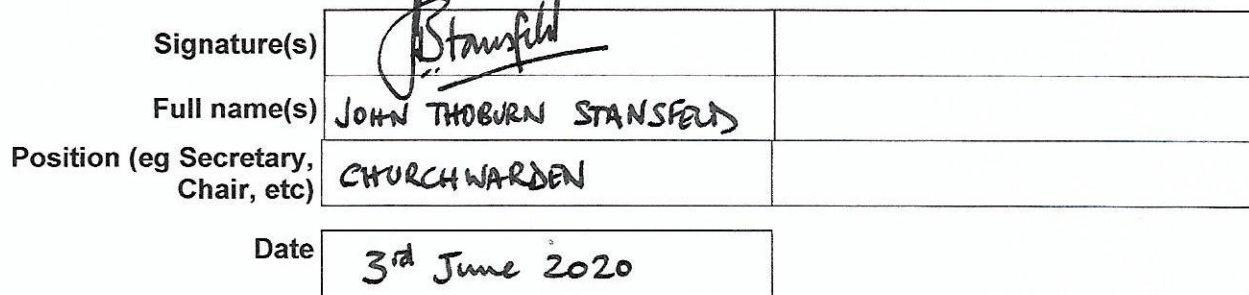 Signature(s) JStansfeld
Full name(s) JOHN THOBURN STANSFELD
Position (eg Secretary,
Chair, etc) CHURCHWARDEN
Date 3rd June 2020